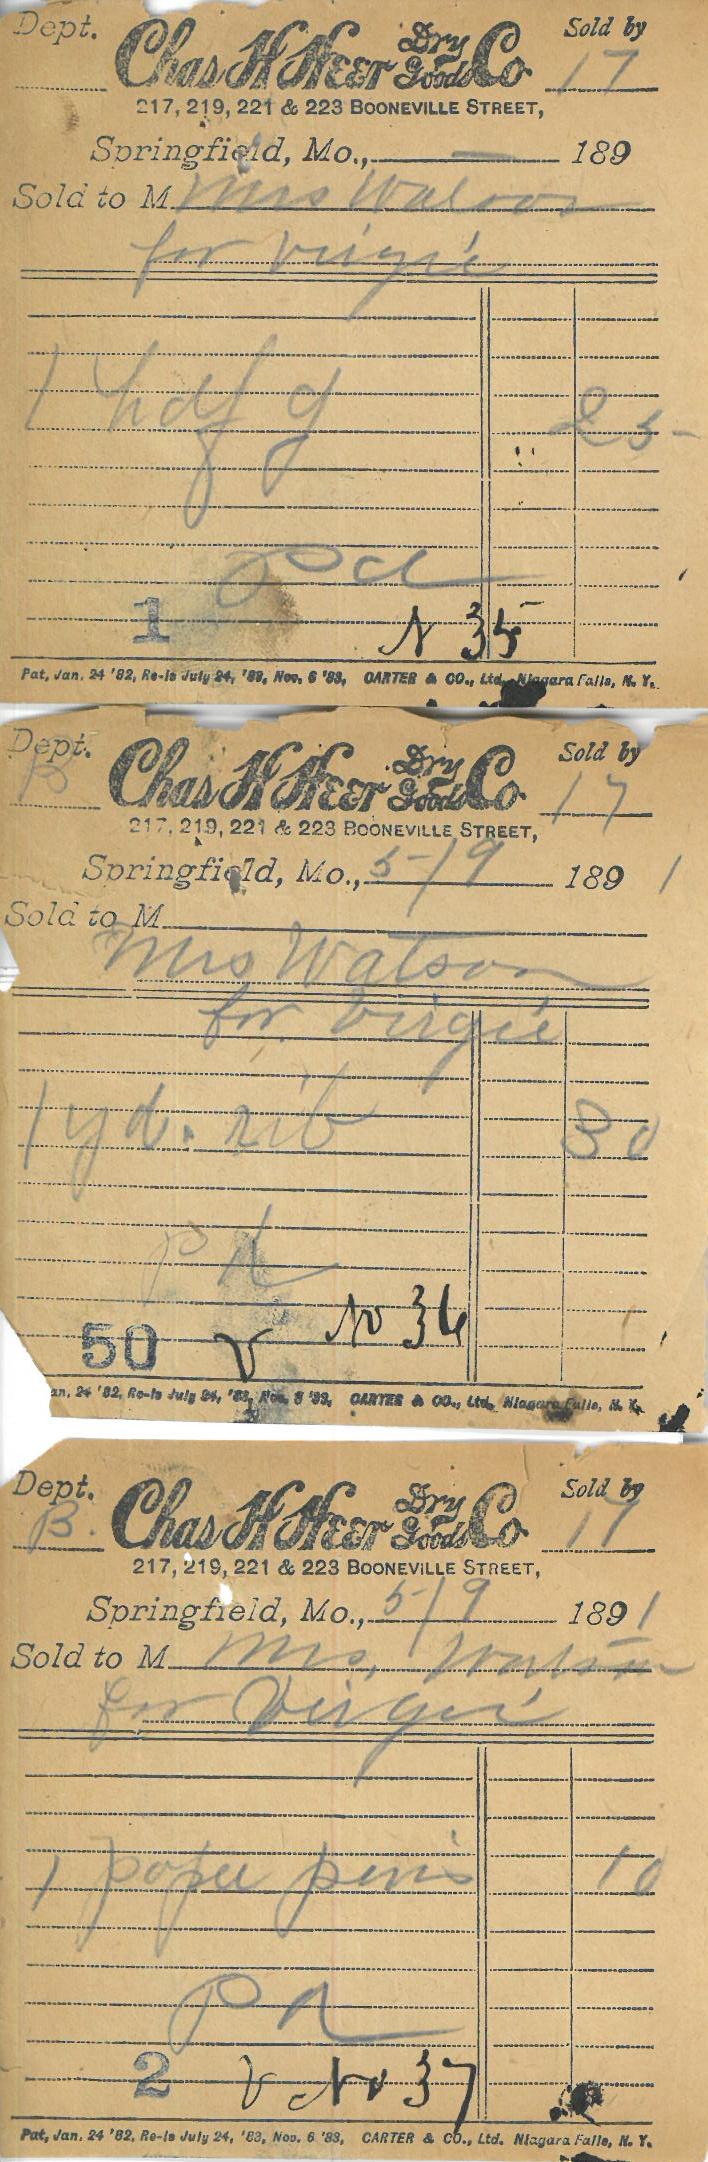 Dept. Chas H Heer Dry Goods Co Sold by
17
217, 219, 221 & 223 BOONEVILLE STREET,
Springfield, Mo., 189
Sold to M Mrs Watson
for Virgie
1 hdf g 25
Pd
1 N 35
Pat, Jan. 24 '82, Re-is July 24, '83, Nov. 6 '83, CARTER & CO., Ltd. Niagara Falls, N. Y.
Dept. Chas H Heer Dry Goods Co Sold by
B 17
217, 219, 221 & 223 BOONEVILLE STREET,
Springfield, Mo., 5/9 1891
Sold to M
Mrs Watson
for Virgie
1 yd. rib 30
Pd
50 V No 36
an. 24 '82, Re-is July 24, '83, Nov. 6 '83, CARTER & CO., Ltd. Niagara Falls, N. Y.
Dept. Chas H Heer Dry Goods Co Sold by
B. 17
217, 219, 221 & 223 BOONEVILLE STREET,
Springfield, Mo., 5/9 1891
Sold to M Mrs, Watson
for Virgie
1 paper pins 10
Pd
2 V No 37
Pat, Jan. 24 '82, Re-is July 24, '83, Nov. 6 '83, CARTER & CO., Ltd. Niagara Falls, N. Y.